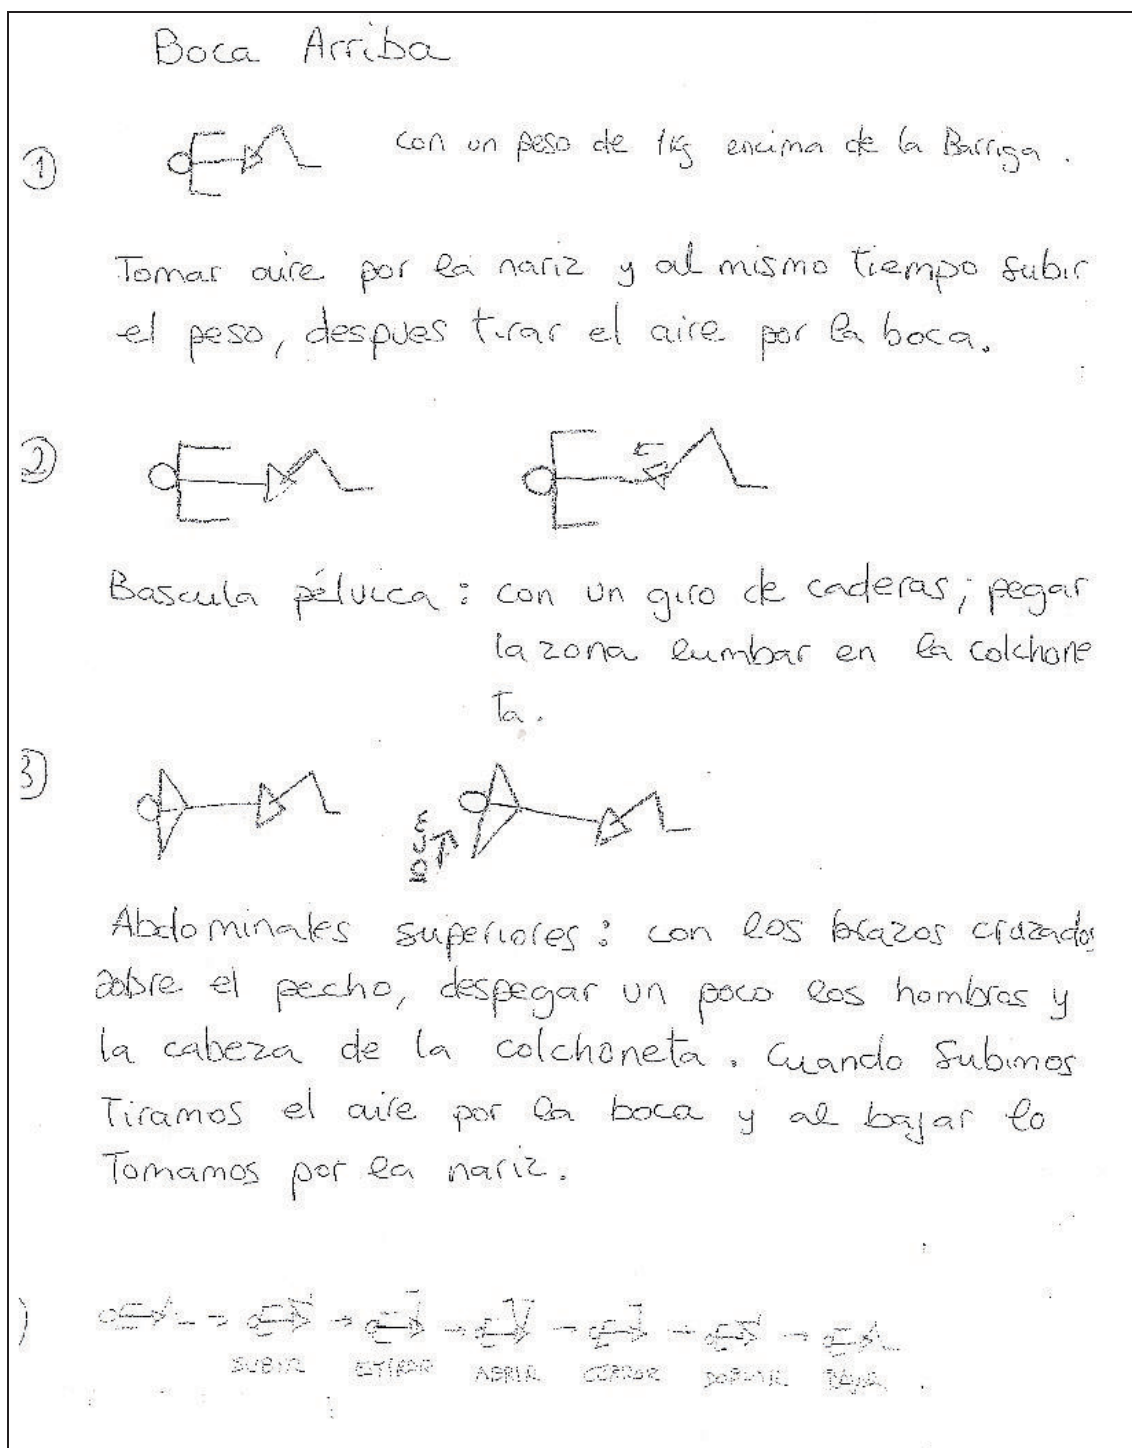 Boca Arriba
① con un peso de 1kg encima de la Barriga.
Tomar aire por la nariz y al mismo tiempo subir
el peso, despues tirar el aire por la boca.
②
Bascula pélvica: con un giro de caderas; pegar
la zona lumbar en la colchone
ta.
3)
Abdominales superiores: con los brazos cruzados
sobre el pecho, despegar un poco los hombros y
la cabeza de la colchoneta. Cuando Subimos
Tiramos el aire por la boca y al bajar lo
Tomamos por la nariz.
)
SUBIR ESTIRAR ABRIR CERRAR DOBLAR BAJAR.